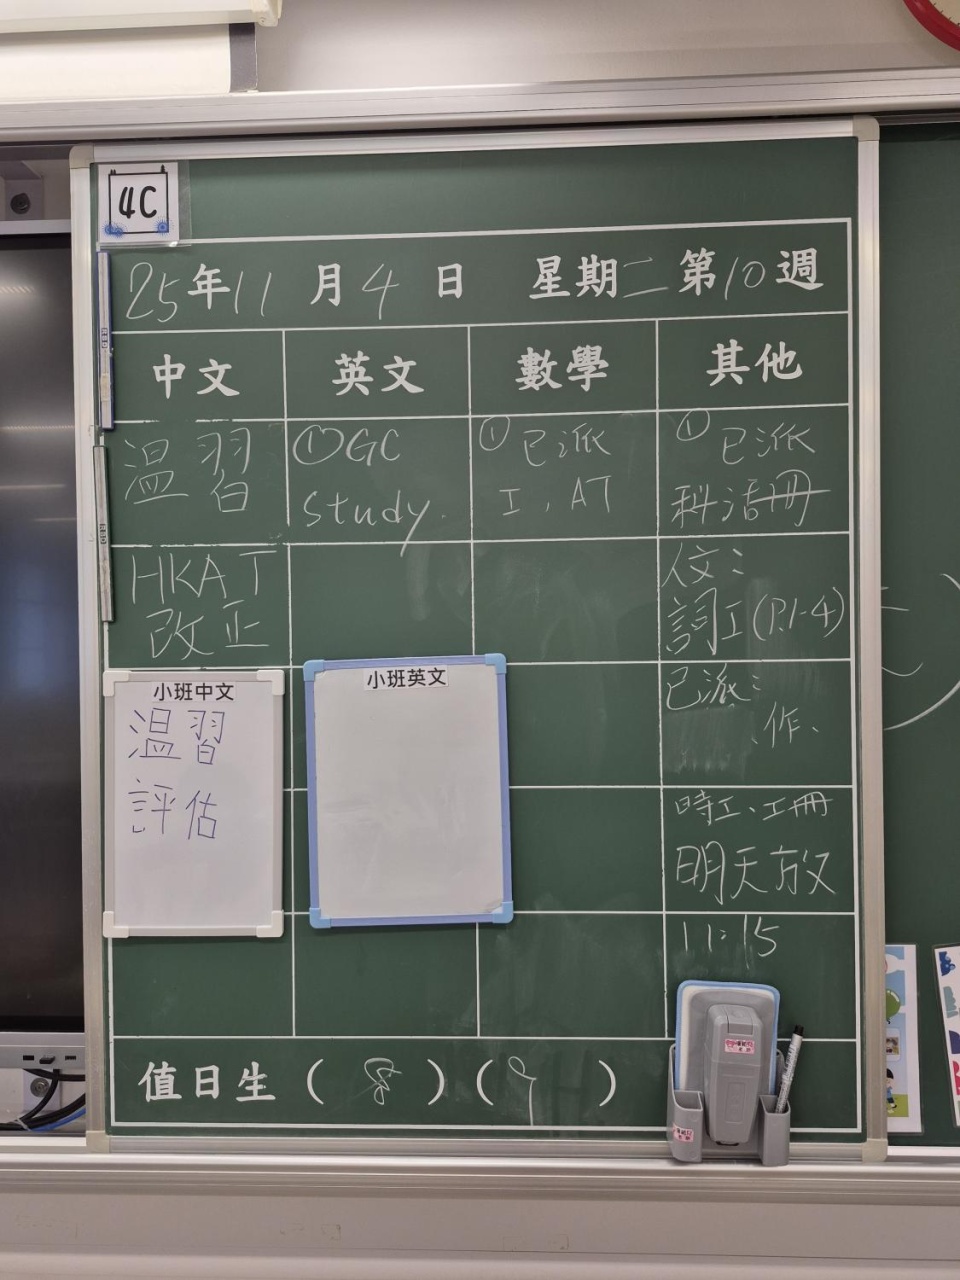 4C
25年11月4日 星期二 第10週
中文 英文 數學 其他
溫習
HKAT
改正
①GC
study.
①已派
工, AT
①已派
科活冊
人文:
詞工(P.1-4)
已派:
作、
時工、工冊
明天放
11:15
小班中文
溫習
評估
小班英文
值日生 ( 8 ) ( 9 )